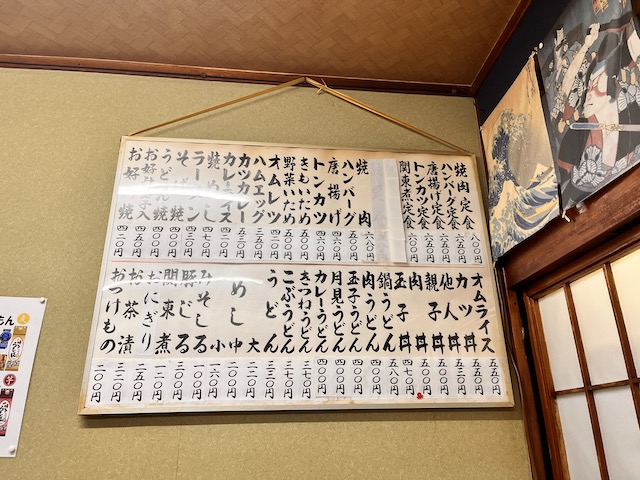 焼肉定食 八〇〇円
ハンバーグ定食 六五〇円
唐揚げ定食 六五〇円
トンカツ定食 六五〇円
関東煮定食 六〇〇円
焼肉 六八〇円
ハンバーグ 四五〇円
唐揚げ 四六〇円
トンカツ 四六〇円
きもいため 五〇〇円
野菜いため 五〇〇円
オムレツ 四五〇円
ハムエッグ 三五〇円
カツカレー 五三〇円
カレーライス 四二〇円
焼めし 四七〇円
ラーメン 三五〇円
そば焼 四〇〇円
うどん焼 四〇〇円
お好み肉入焼
お好み焼 四二〇円
オムライス 五五〇円
カツ丼 五五〇円
他人丼 五三〇円
親子丼 五〇円
肉丼 五〇〇円
玉子丼 四七〇円
鍋うどん 五八〇円
肉うどん 四〇〇円
玉子うどん 四〇〇円
月見うどん 四〇〇円
カレーうどん 四〇〇円
きつねうどん 三七〇円
こぶうどん 三七〇円
うどん 三三〇円
めし 大 二五〇円
中 二〇〇円
小 一五〇円
みそしる 一〇〇円
豚じる 一三〇円
関東煮 一一〇円
おにぎり 一五〇円
お茶漬 三二〇円
おつけもの 二〇〇円